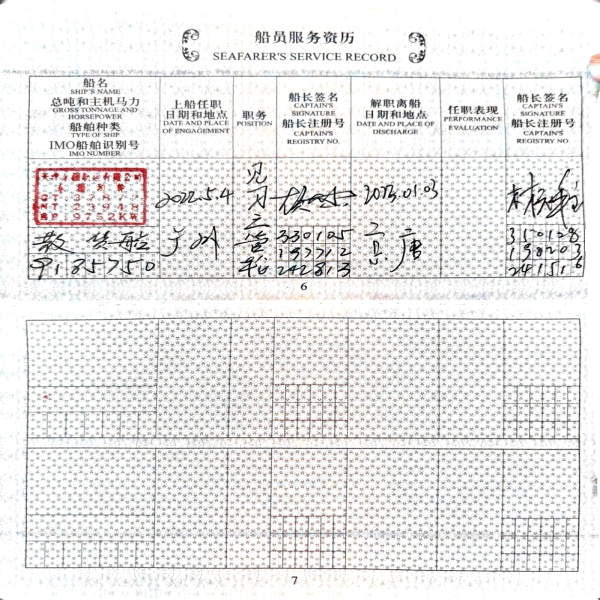 船员服务资历
SEAFARER'S SERVICE RECORD
船名
SHIP'S NAME
总吨和主机马力
GROSS TONNAGE AND
HORSEPOWER
船舶种类
TYPE OF SHIP
IMO船舶识别号
IMO NUMBER
上船任职
日期和地点
DATE AND PLACE
OF ENGAGEMENT
职务
POSITION
船长签名
CAPTAIN'S
SIGNATURE
船长注册号
CAPTAIN'S
REGISTRY NO.
解职离船
日期和地点
DATE AND PLACE OF
DISCHARGE
任职表现
PERFORMANCE
EVALUATION
船长签名
CAPTAIN'S
SIGNATURE
船长注册号
CAPTAIN'S
REGISTRY NO.
散货船
9135750
2022.5.4
广州
见
习
三
管
轮
330105
197712
242813
2023.01.03
310128
198203
241516
6
7